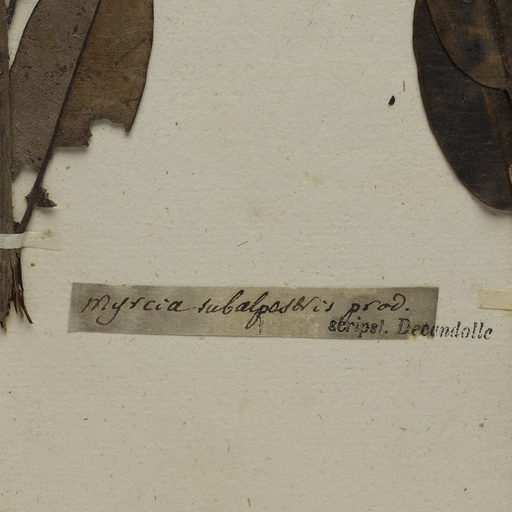 Myrcia subalpestris prod.
scripst. Decandolle